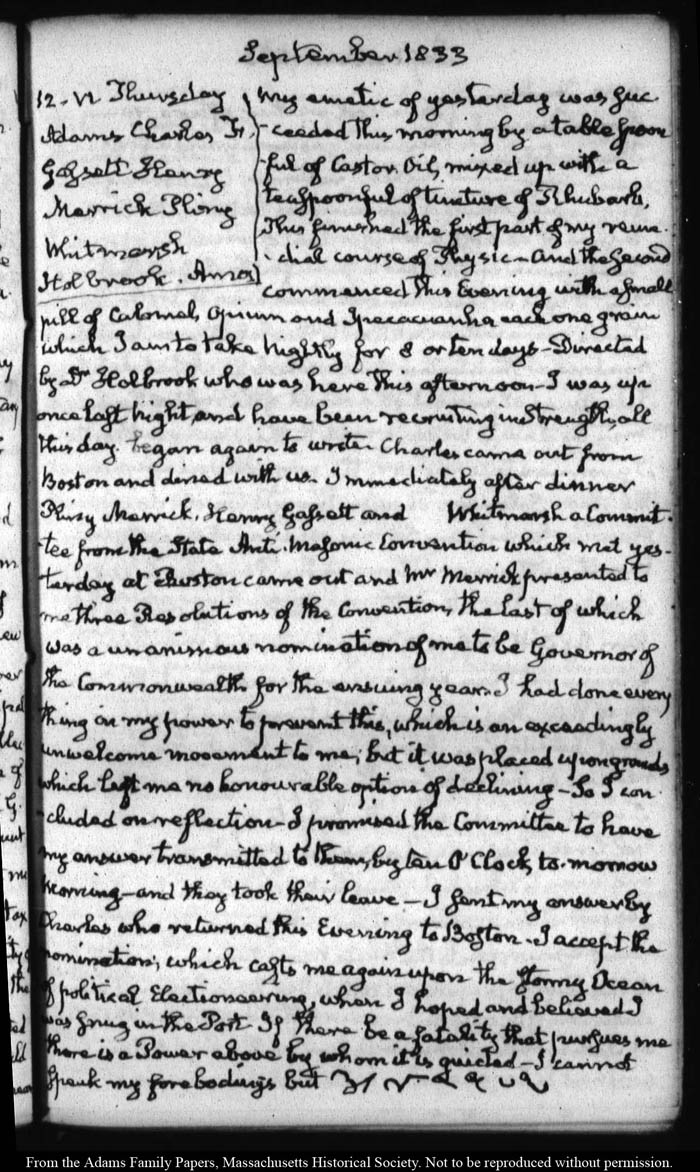 September 1833
12. VI. Thursday
Adams Charles F.
Gassett Henry
Merrick Pliny
Whitmarsh
Holbrook. Amos
My emetic of yesterday was suc-
-ceeded this morning by a table spoon
-ful of Castor Oil, mixed up with a
teaspoonful of tincture of Rhubarb.
This finished the first part of my reme-
-dial course of Physic — and the second
commenced this Evening with a small
pill of Calomel, Opium and Ipecacuanha each one grain
which I am to take nightly for 8 or ten days — Directed
by Dr. Holbrook who was here this afternoon — I was up
once last night, and have been recruiting in strength, all
this day. began again to write. Charles came out from
Boston and dined with us. Immediately after dinner
Pliny Merrick, Henry Gassett and Whitmarsh a Commit-
-tee from the State Anti-Masonic Convention which met yes-
-terday at Boston came out and Mr Merrick presented to
me three Resolutions of the Convention, the last of which
was a unanimous nomination of me to be Governor of
the Commonwealth for the ensuing year. I had done every
thing in my power to prevent this, which is an exceedingly
unwelcome movement to me; but it was placed upon grounds
which left me no honourable option of declining — So I con-
-cluded on reflection — I promised the Committee to have
my answer transmitted to them, by ten O'Clock, to-morrow
morning — and they took their leave — I sent my answer by
Charles who returned this Evening to Boston. I accept the
nomination; which casts me again upon the stormy Ocean
of political Electioneering, when I hoped and believed I
was snug in the Port. If there be a fatality that pursues me
there is a Power above by whom it is guided — I cannot
speak my forebodings but
From the Adams Family Papers, Massachusetts Historical Society. Not to be reproduced without permission.